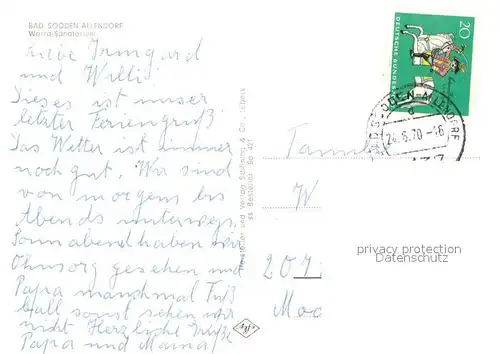 BAD SOODEN-ALLENDORF
Werra-Sanatorium
Liebe Irmgard
und Willi
Dieses ist unser
letzter Feriengruß
Das Wetter ist immer
noch gut. Wir sind
von morgens bis
Abends unterwegs.
Sonnabend haben wir
Ohnsorg gesehen und
Papa manchmal Fuß
ball sonst sehen wir
nicht Herzliche Grüße
Papa und Mama
Hersteller und Verlag Schöning & Co., Lübeck
Bestellnr. So 401
20
DEUTSCHE BUNDESPOST
BAD SOODEN-ALLENDORF
d
24.6.70-16
Familie
W
207
Moo
privacy protection
Datenschutz